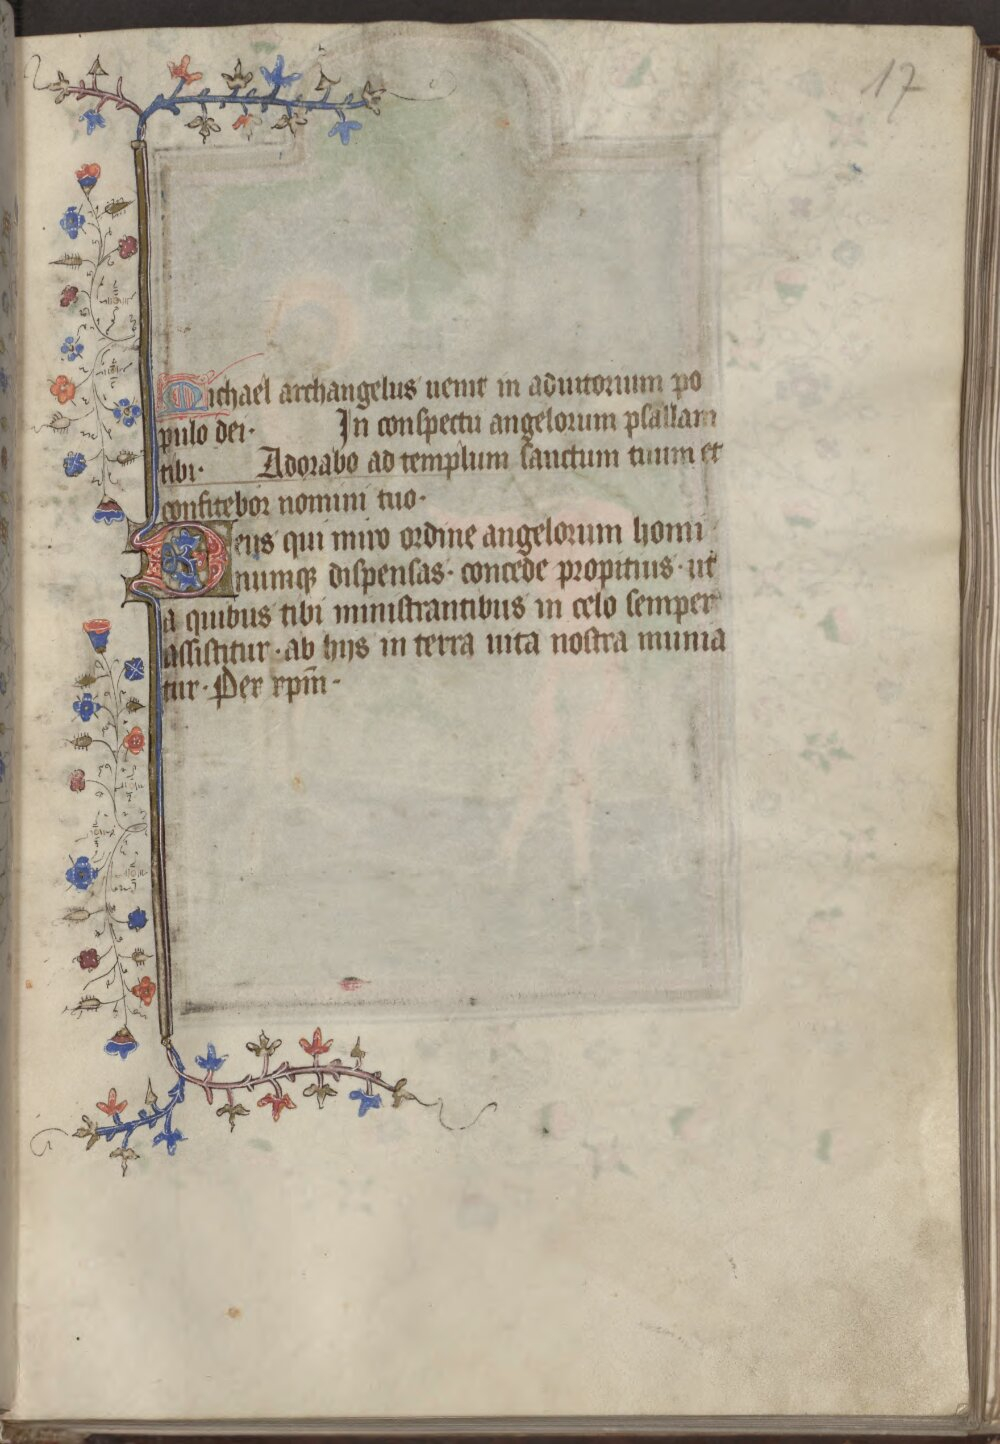 17
Michael archangelus uenit in adiutorium po
pulo dei· In conspectu angelorum psallam
tibi· Adorabo ad templum sanctum tuum et
confitebor nomini tuo·
Deus qui miro ordine angelorum homi
numqꝫ dispensas· concede propitius· ut
a quibus tibi ministrantibus in celo semper
assistitur· ab hijs in terra uita nostra munia
tur· Per xpm̄·